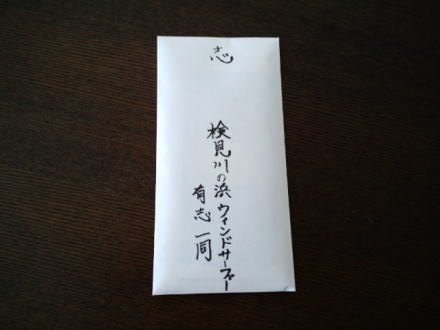 志
検見川の浜ウィンドサーファー
有志一同